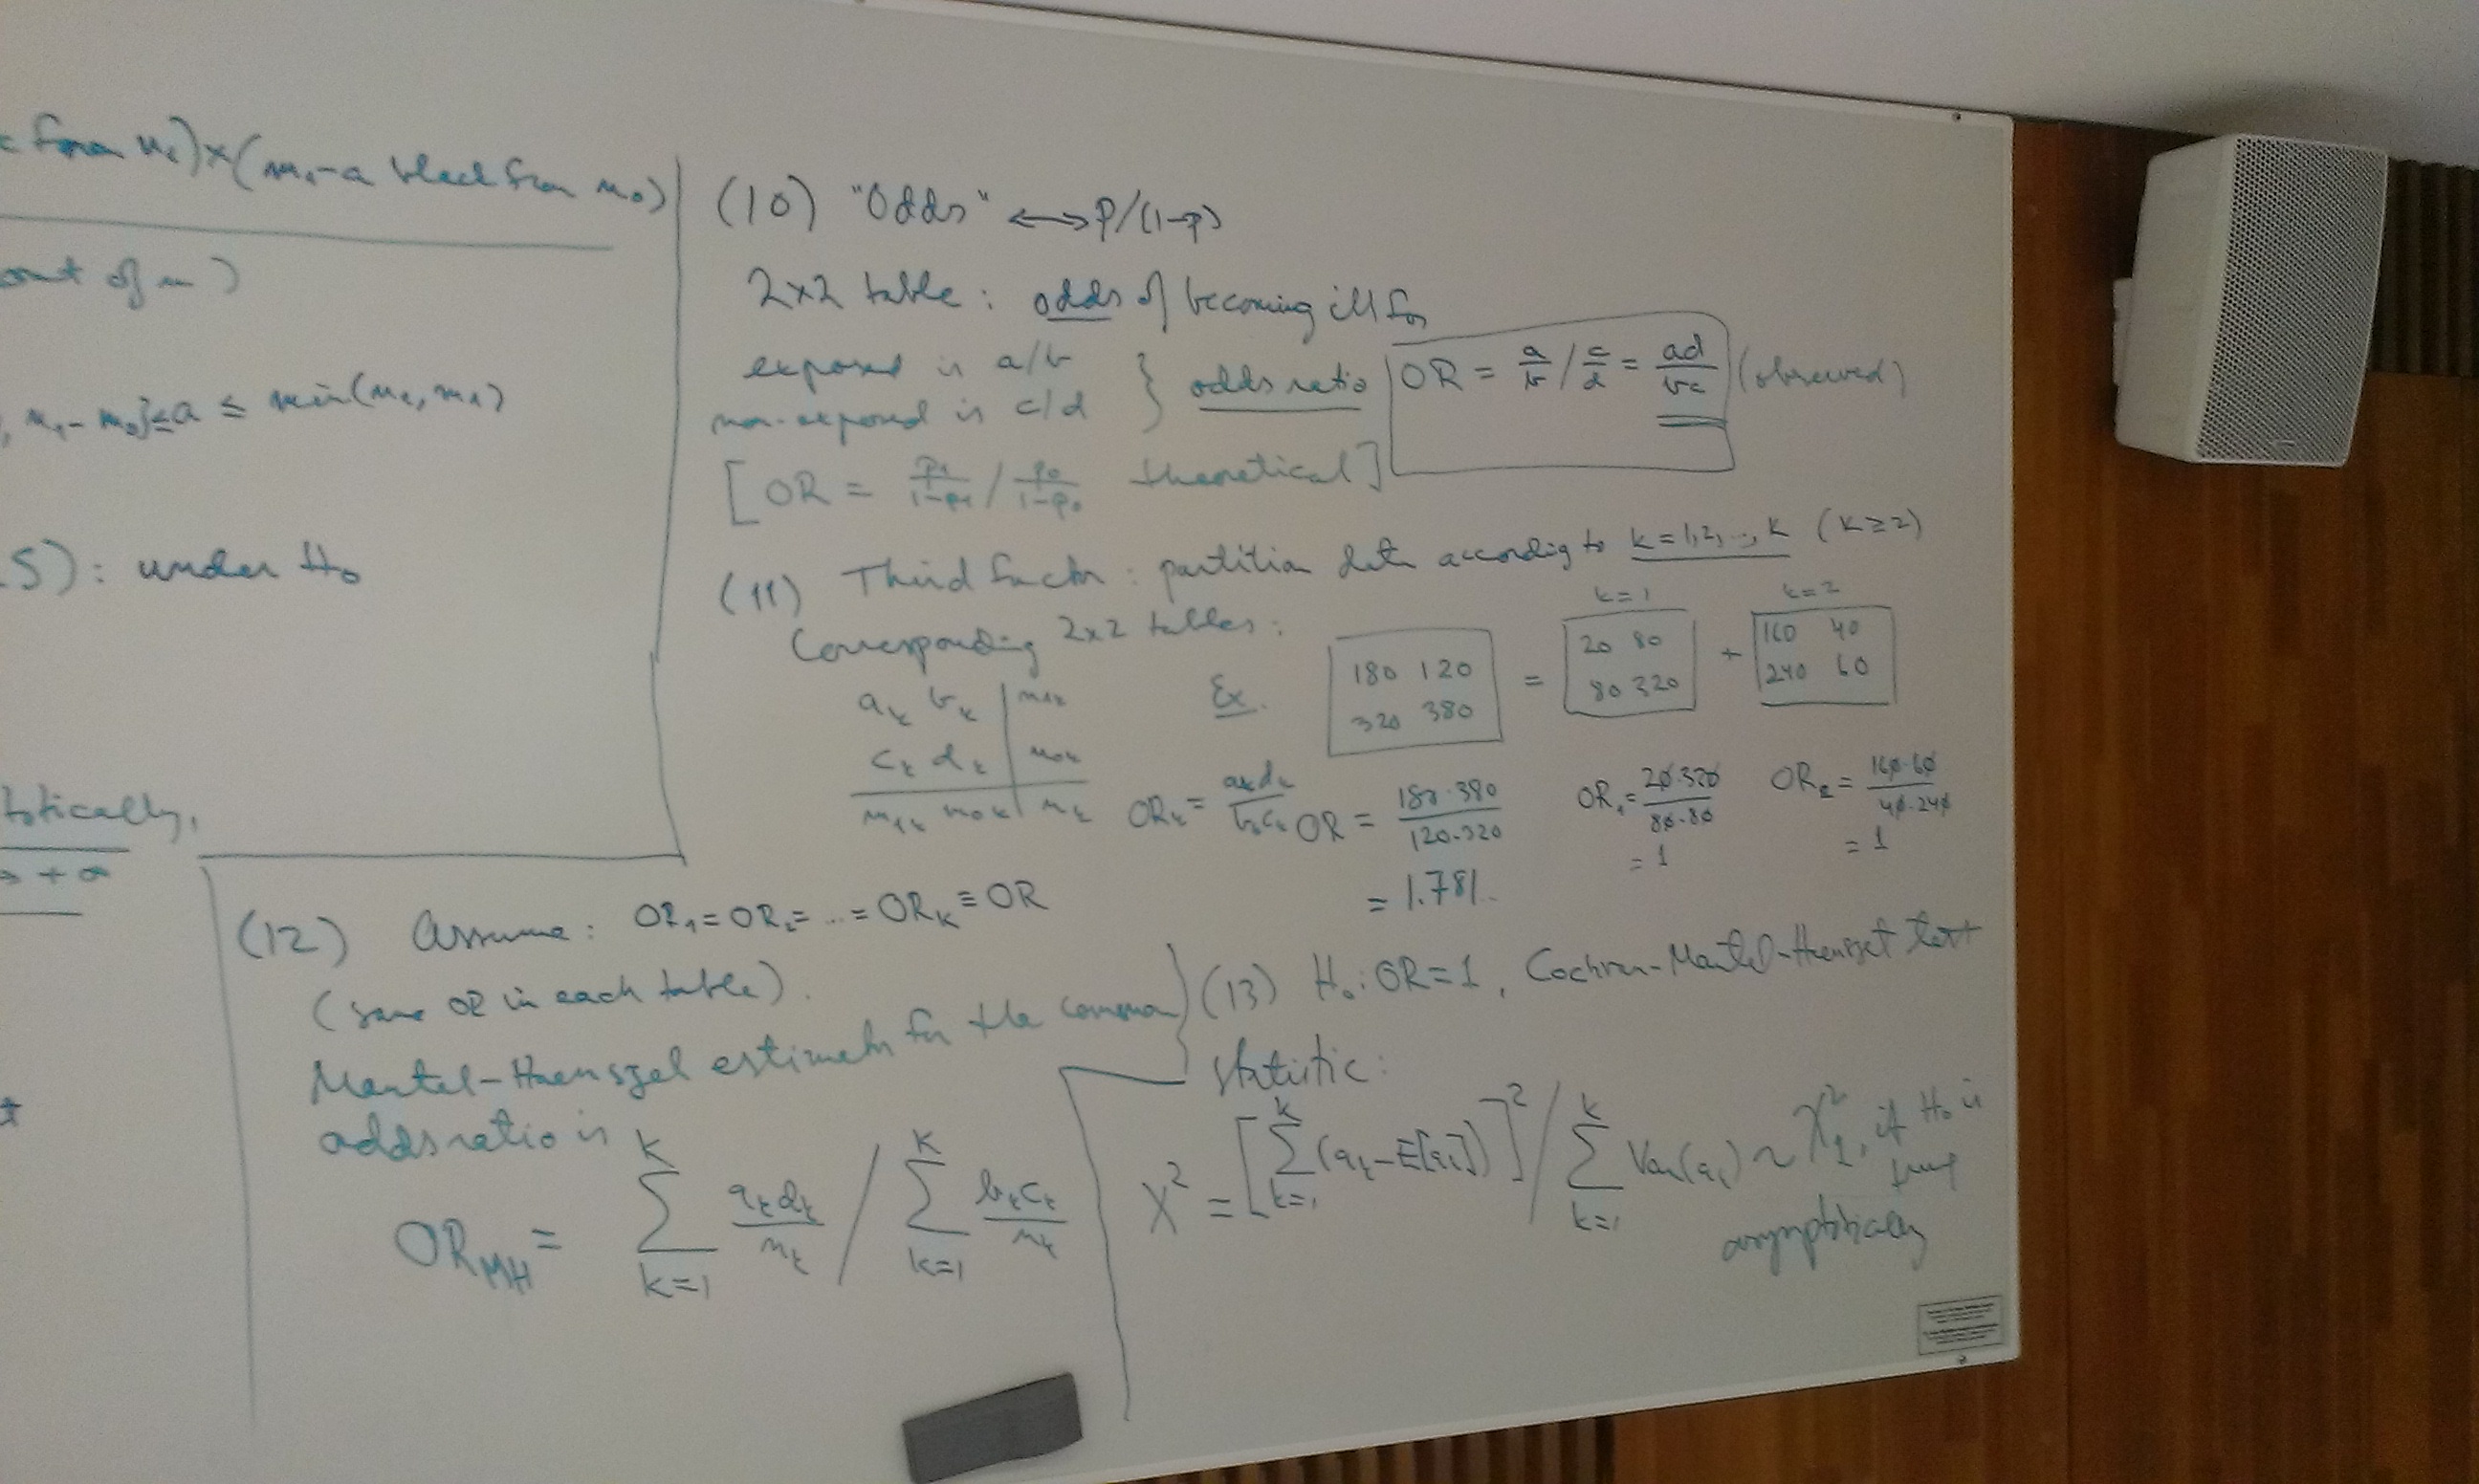 from n₁)×(m₁-a black from m₀)
out of n)
, m₁-m₀}≤a ≤ min(n₁,m₁)
.5): under H₀
totically,
→ +∞
(10) "Odds" ⟷ p/(1-p)
2×2 table: odds of becoming ill for
exposed is a/b
non-exposed is c/d } odds ratio OR = a/b / c/d = ad/bc (observed)
[OR = p₁/1-p₁ / p₀/1-p₀ theoretical]
(11) Third factor: partition data according to k=1,2,..,K (K≥2)
Corresponding 2×2 tables:
k=1 k=2
aₖ bₖ | n₁ₖ
cₖ dₖ | n₀ₖ
m₁ₖ m₀ₖ | nₖ
Ex.
180 120
320 380
=
20 80
80 320
+
160 40
240 60
ORₖ = aₖdₖ/bₖcₖ
OR = 180·380/120·320
= 1.781.
OR₁ = 20·320/80·80
= 1
OR₂ = 160·60/40·240
= 1
(12) Assume: OR₁=OR₂= ... =ORK≡OR
(same OR in each table).
Mantel-Haenszel estimate for the common
odds ratio is
OR_MH = ∑ₖ₌₁ᴷ aₖdₖ/nₖ / ∑ₖ₌₁ᴷ bₖcₖ/nₖ
(13) H₀: OR=1, Cochran-Mantel-Haenszel test
statistic:
X² = [∑ₖ₌₁ᴷ(aₖ-E[aₖ])]² / ∑ₖ₌₁ᴷ Var(aₖ) ~ χ²₁, if H₀ is
true
asymptotically